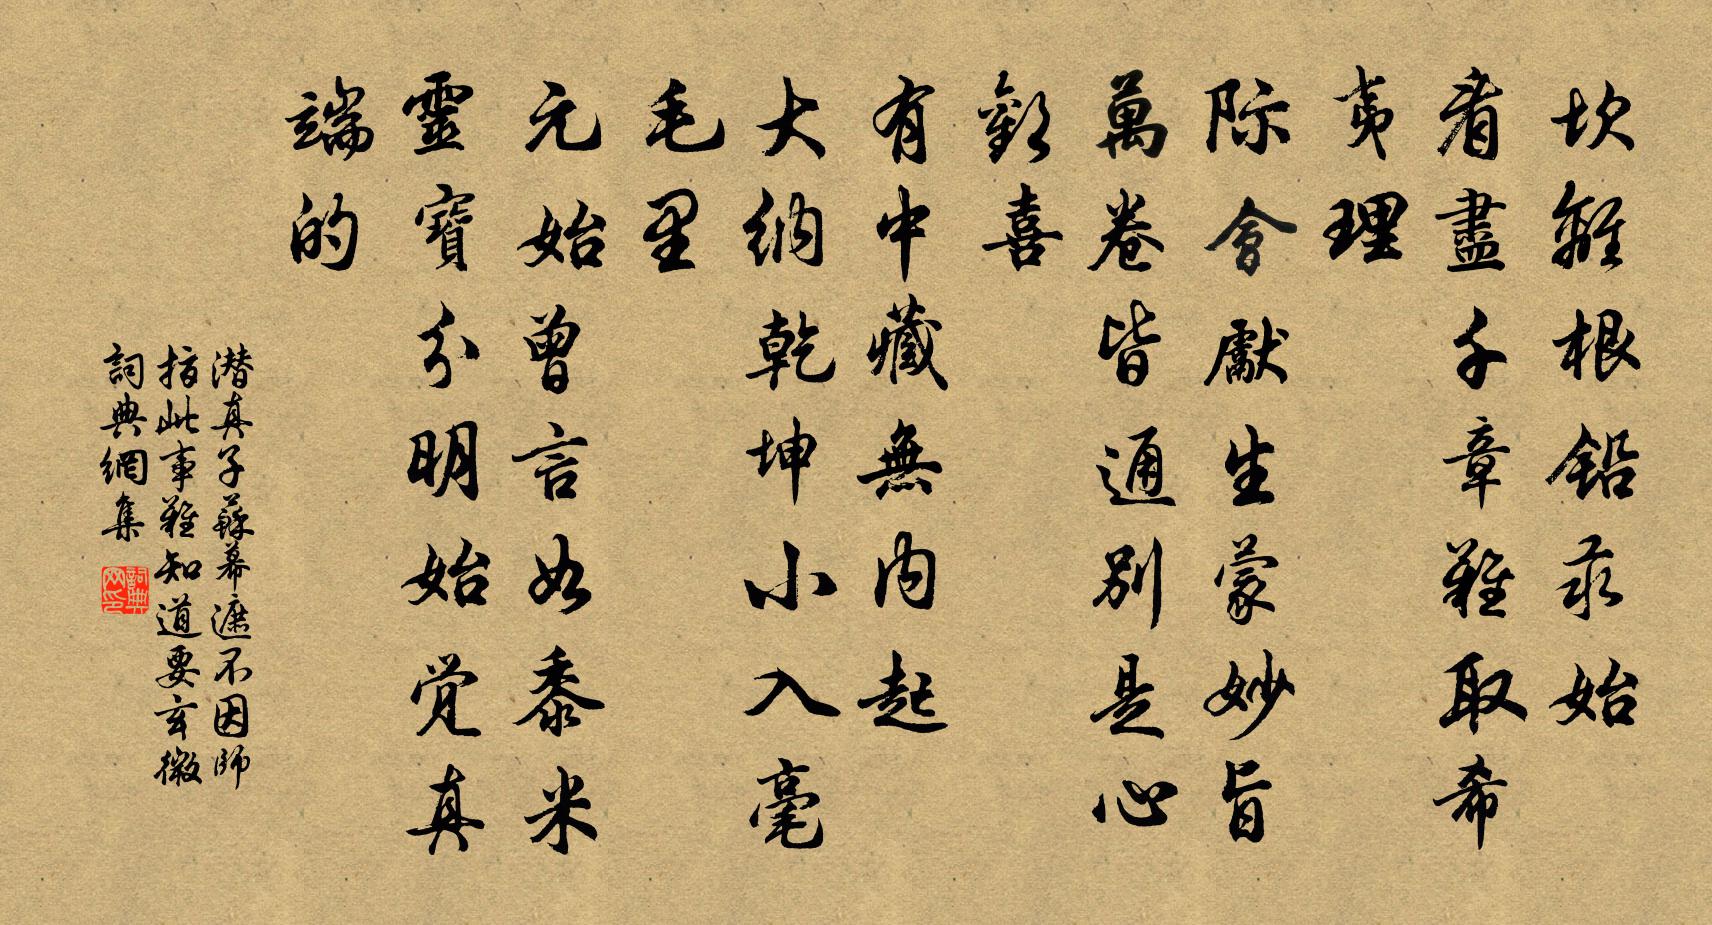 坎離根鉛汞始
看盡千章難取希
夷理
际會獻生蒙妙旨
萬卷皆通別是心
歡喜
有中藏無内起
大納乾坤小入毫
毛里
元始曾言如黍米
靈寶分明始觉真
端的
潜真子蘇幕遮不因師
指此事難知道要玄微
詞典網集
詞典网印